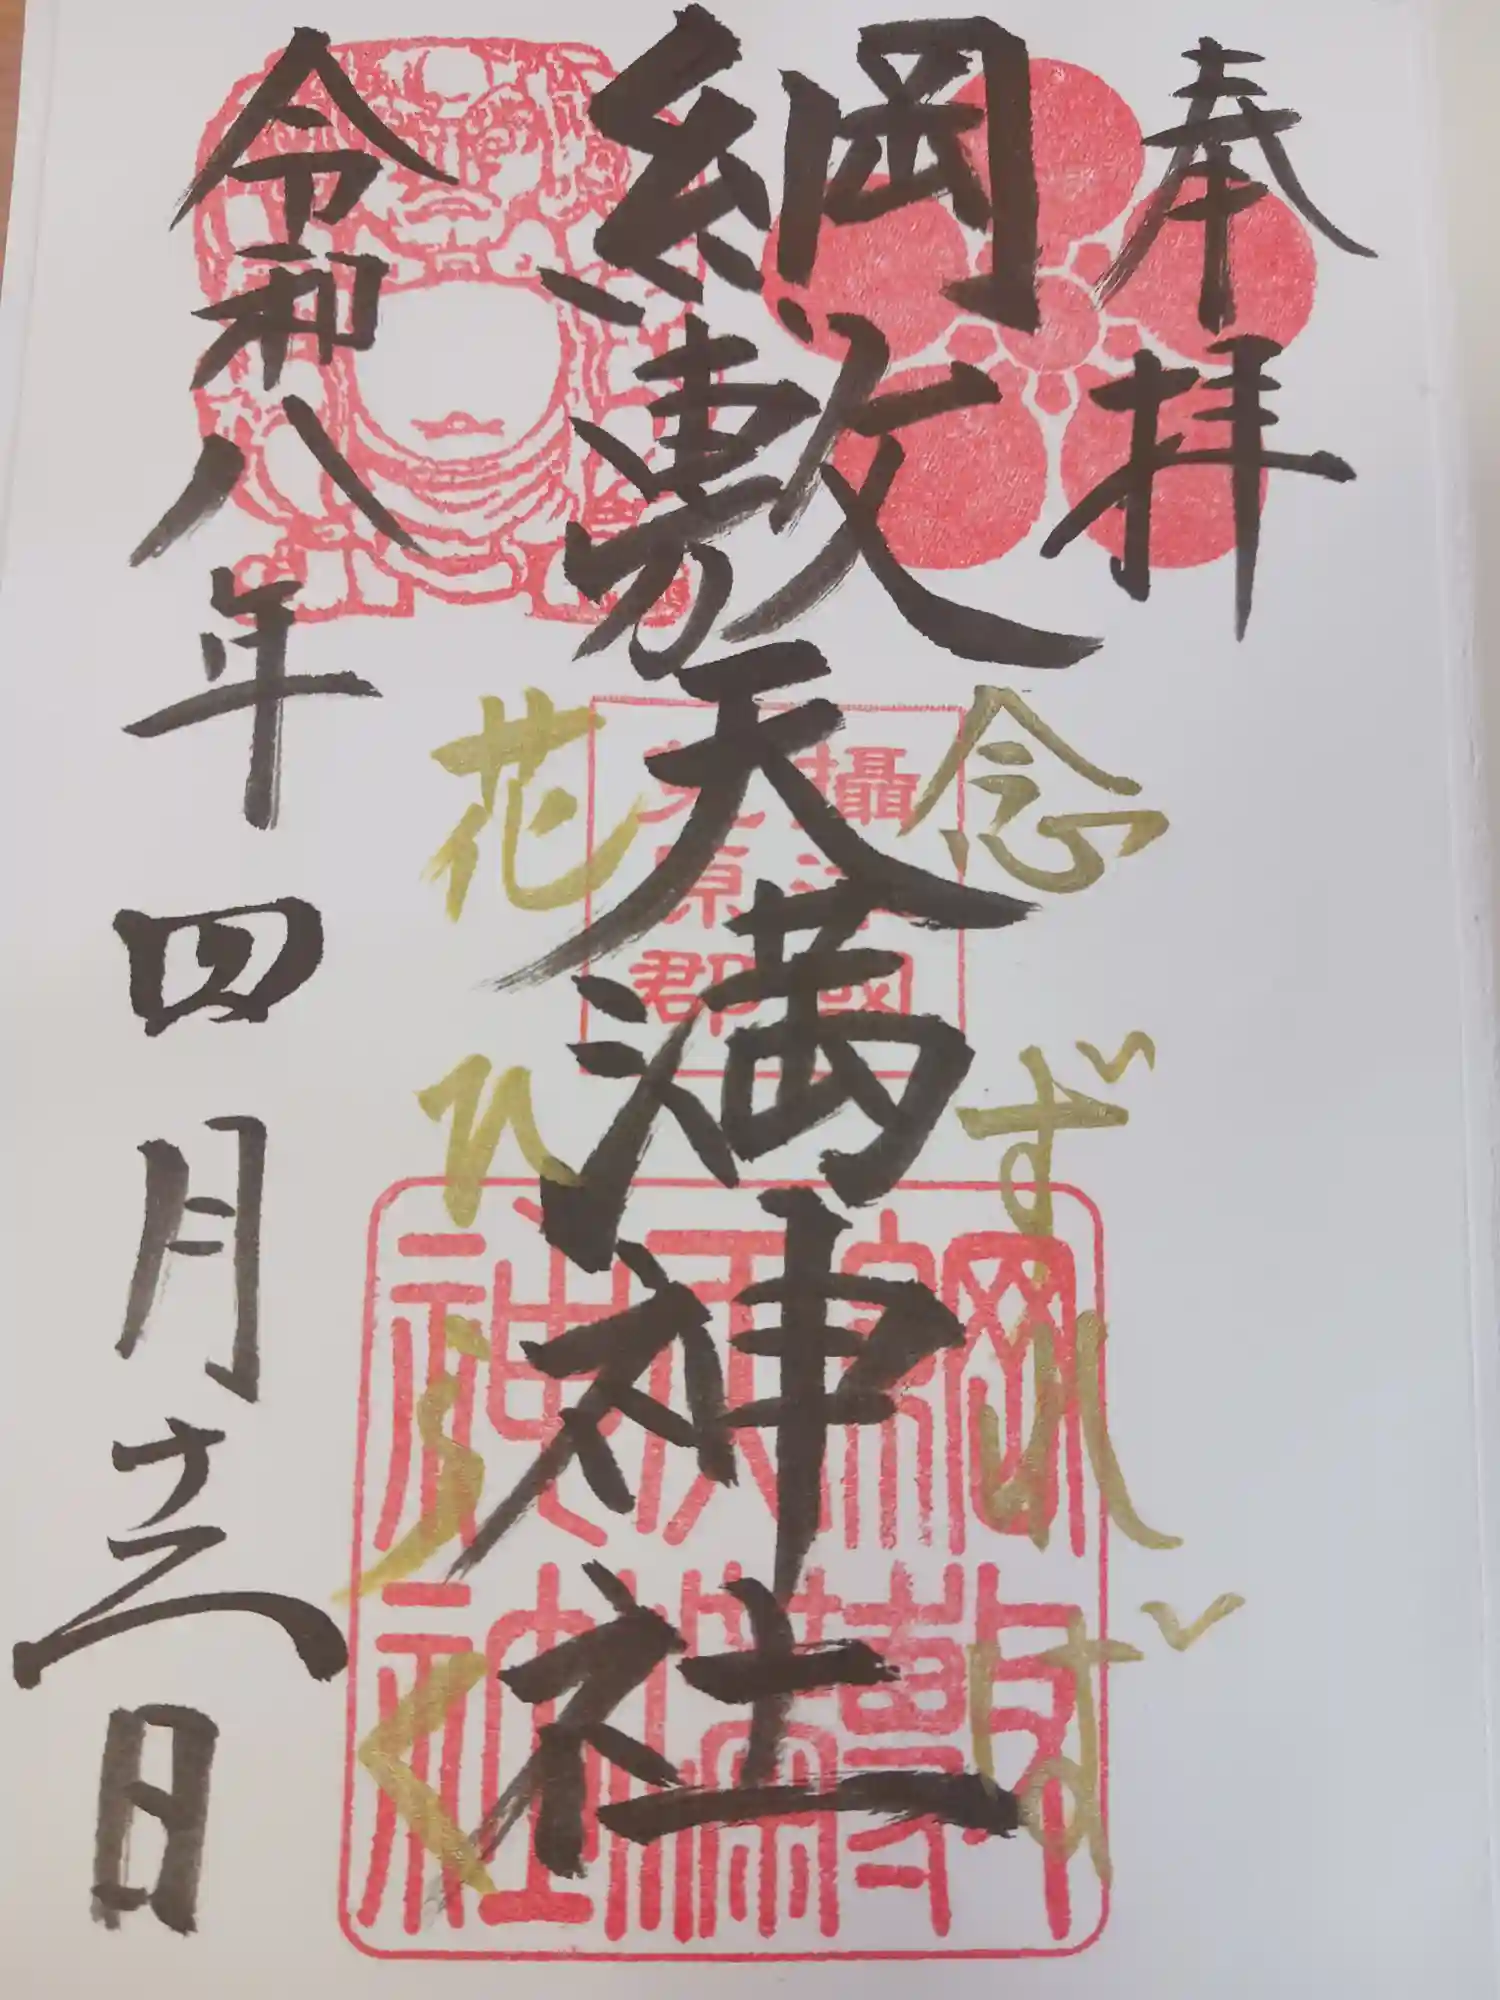 奉拝
綱敷天満神社
令和八年四月十二日
念ずれば
花ひらく
攝津國
菟原郡
綱敷
天満
神社